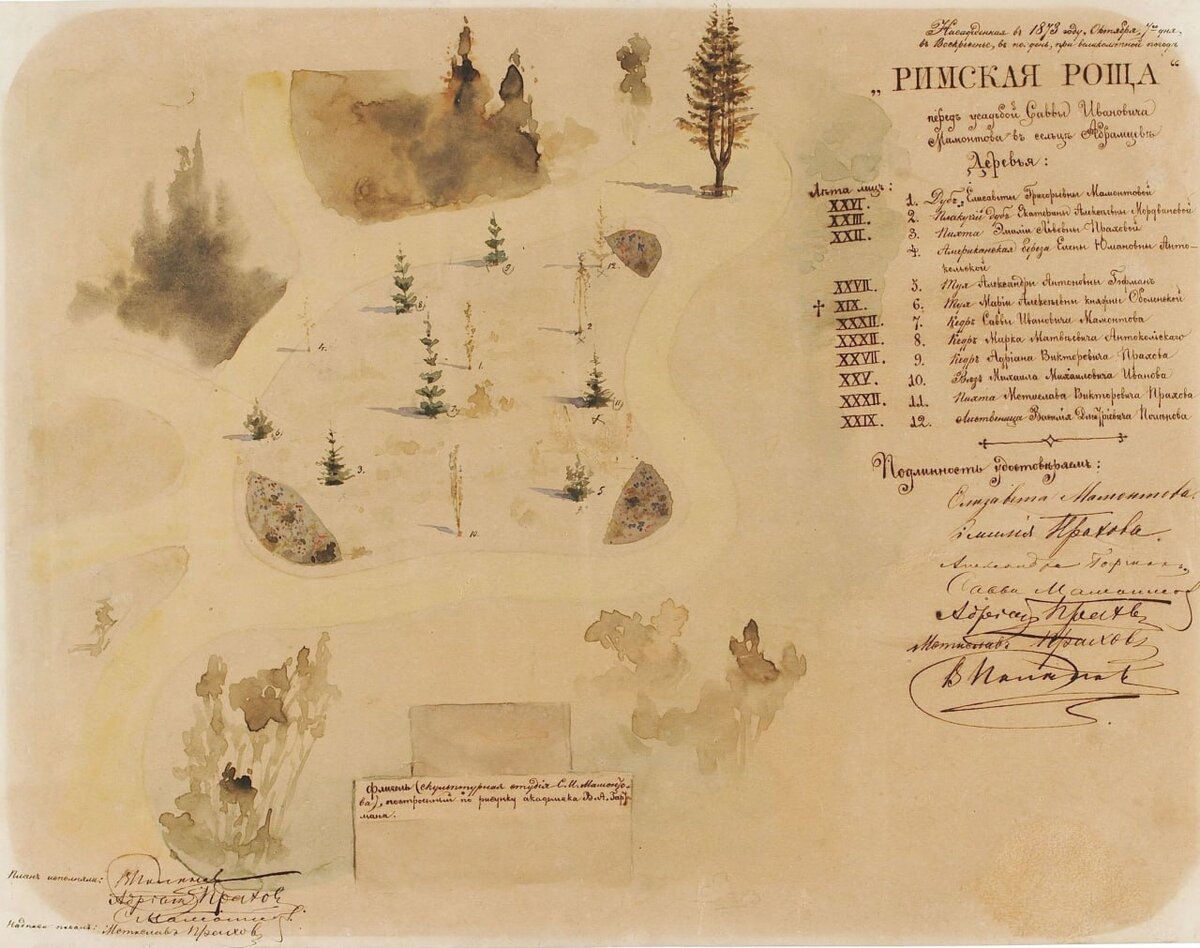 Насажденная въ 1873 году, Октября, 7го дня,
въ Воскресенье, въ полдень, при великолѣпной погодѣ
„РИМСКАЯ РОЩА“
передъ усадьбой Саввы Ивановича
Мамонтова въ сельцѣ Абрамцевѣ
Деревья:
Лѣта лицъ:
XXVI. 1. Дубъ Елисаветы Григорьевны Мамонтовой
XXIII. 2. Плакучій дубъ Екатерины Алексѣевны Мордвиновой
XXII. 3. Пихта Эмиліи Львовны Праховой
4. Американская береза Елены Юліановны Анто-
кольской
XXVII. 5. Туя Александры Антоновны Гофманъ
† XIX. 6. Туя Маріи Алексѣевны княжны Оболенской
XXXII. 7. Кедръ Саввы Ивановича Мамонтова
XXXII. 8. Кедръ Марка Матвѣевича Антокольскаго
XXVII. 9. Кедръ Адріана Викторовича Прахова
XXV. 10. Вязъ Михаила Михайловича Иванова
XXXII. 11. Пихта Мстислава Викторовича Прахова
XXIX. 12. Лиственница Василія Дмитріевича Полѣнова
Подлинность удостовѣряемъ:
Елизавета Мамонтова.
Эмилія Прахова.
Александра Гофманъ
Савва Мамонтов
Адріанъ Праховъ
Мстиславъ Праховъ
В Полѣновъ
9
12.
8
2
4.
1.
7
11
6
3.
5
10.
флигель (скульптурная студія С. И. Мамонто-
ва), построенный по рисунку академика В. А. Гарт-
мана.
Планъ исполняли: ВПолѣнов
Адріанъ Праховъ
С Мамонтов
Надписи писалъ: Мстиславъ Праховъ